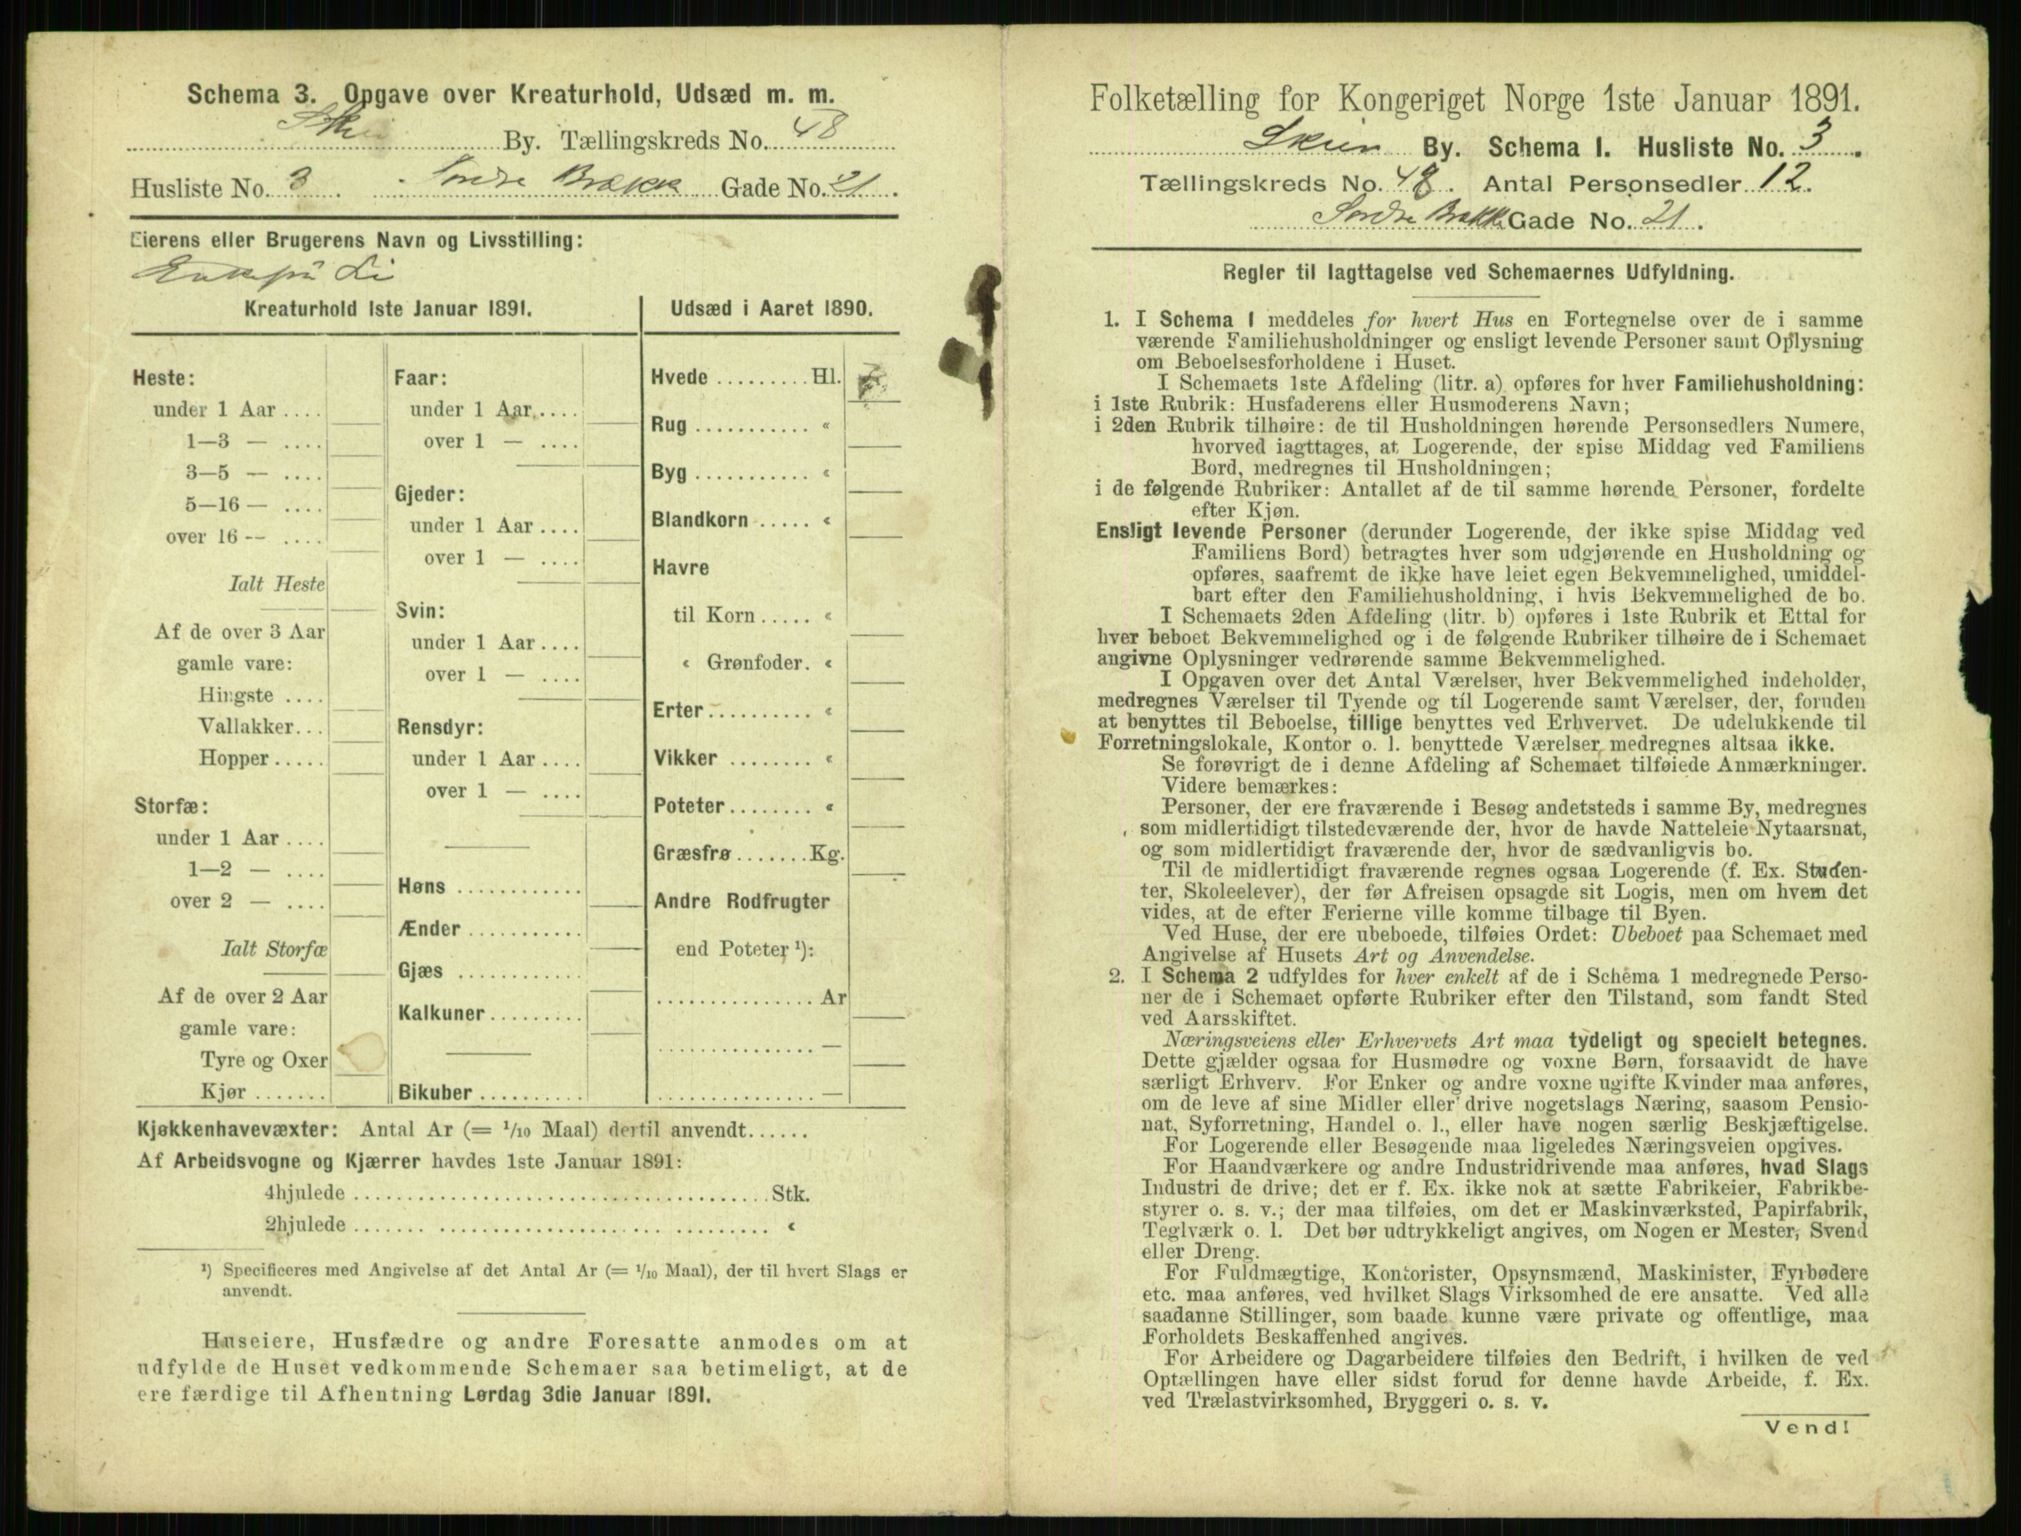 Schema 3. Opgave over Kreaturhold, Udsæd m. m.
Skien By. Tællingskreds No. 48
Husliste No. 3. Søndre Brække Gade No. 21.
Eierens eller Brugerens Navn og Livsstilling:
Enkefru Li
Kreaturhold 1ste Januar 1891.
Heste:
under 1 Aar ....
1—3 — ....
3—5 — ....
5-16 — ....
over 16 — ....
Ialt Heste
Af de over 3 Aar
gamle vare:
Hingste ....
Vallakker...
Hopper.....
Storfæ:
under 1 Aar ....
1—2 — ....
over 2 — ....
Ialt Storfæ
Af de over 2 Aar
gamle vare:
Tyre og Oxer
Kjør .......
Faar:
under 1 Aar....
over 1 — ....
Gjeder:
under 1 Aar ....
over 1 — ....
Svin:
under 1 Aar ....
over 1 — ....
Rensdyr:
under 1 Aar ....
over 1 — ....
Høns ............
Ænder ...........
Gjæs ............
Kalkuner.........
Bikuber ..........
Udsæd i Aaret 1890.
Hvede .........Hl.
Rug ........... «
Byg ........... «
Blandkorn ..... «
Havre
til Korn ..... «
« Grønfoder. «
Erter.......... «
Vikker ........ «
Poteter........ «
Græsfrø .......Kg.
Andre Rodfrugter
end Poteter ¹):
............... Ar
............... —
............... —
Kjøkkenhavevæxter: Antal Ar (= 1/10 Maal) dertil anvendt......
Af Arbeidsvogne og Kjærrer havdes 1ste Januar 1891:
4hjulede ........................................Stk.
2hjulede ........................................ «
¹) Specificeres med Angivelse af det Antal Ar (= 1/10 Maal), der til hvert Slags er
anvendt.
Huseiere, Husfædre og andre Foresatte anmodes om at
udfylde de Huset vedkommende Schemaer saa betimeligt, at de
ere færdige til Afhentning Lørdag 3die Januar 1891.
Folketælling for Kongeriget Norge 1ste Januar 1891.
Skien By. Schema I. Husliste No. 3.
Tællingskreds No. 48. Antal Personsedler 12.
Søndre Brække Gade No. 21.
Regler til Iagttagelse ved Schemaernes Udfyldning.
1. I Schema I meddeles for hvert Hus en Fortegnelse over de i samme
værende Familiehusholdninger og ensligt levende Personer samt Oplysning
om Beboelsesforholdene i Huset.
I Schemaets 1ste Afdeling (litr. a) opføres for hver Familiehusholdning:
i 1ste Rubrik: Husfaderens eller Husmoderens Navn;
i 2den Rubrik tilhøire: de til Husholdningen hørende Personsedlers Numere,
hvorved iagttages, at Logerende, der spise Middag ved Familiens
Bord, medregnes til Husholdningen;
i de følgende Rubriker: Antallet af de til samme hørende Personer, fordelte
efter Kjøn.
Ensligt levende Personer (derunder Logerende, der ikke spise Middag ved
Familiens Bord) betragtes hver som udgjørende en Husholdning og
opføres, saafremt de ikke have leiet egen Bekvemmelighed, umiddel-
bart efter den Familiehusholdning, i hvis Bekvemmelighed de bo.
I Schemaets 2den Afdeling (litr. b) opføres i 1ste Rubrik et Ettal for
hver beboet Bekvemmelighed og i de følgende Rubriker tilhøire de i Schemaet
angivne Oplysninger vedrørende samme Bekvemmelighed.
I Opgaven over det Antal Værelser, hver Bekvemmelighed indeholder,
medregnes Værelser til Tyende og til Logerende samt Værelser, der, foruden
at benyttes til Beboelse, tillige benyttes ved Erhvervet. De udelukkende til
Forretningslokale, Kontor o. l. benyttede Værelser medregnes altsaa ikke.
Se forøvrigt de i denne Afdeling af Schemaet tilføiede Anmærkninger.
Videre bemærkes:
Personer, der ere fraværende i Besøg andetsteds i samme By, medregnes
som midlertidigt tilstedeværende der, hvor de havde Natteleie Nytaarsnat,
og som midlertidigt fraværende der, hvor de sædvanligvis bo.
Til de midlertidigt fraværende regnes ogsaa Logerende (f. Ex. Studen-
ter, Skoleelever), der før Afreisen opsagde sit Logis, men om hvem det
vides, at de efter Ferierne ville komme tilbage til Byen.
Ved Huse, der ere ubeboede, tilføies Ordet: Ubeboet paa Schemaet med
Angivelse af Husets Art og Anvendelse.
2. I Schema 2 udfyldes for hver enkelt af de i Schema 1 medregnede Perso-
ner de i Schemaet opførte Rubriker efter den Tilstand, som fandt Sted
ved Aarsskiftet.
Næringsveiens eller Erhvervets Art maa tydeligt og specielt betegnes.
Dette gjælder ogsaa for Husmødre og voxne Børn, forsaavidt de have
særligt Erhverv. For Enker og andre voxne ugifte Kvinder maa anføres,
om de leve af sine Midler eller drive nogetslags Næring, saasom Pensio-
nat, Syforretning, Handel o. l., eller have nogen særlig Beskjæftigelse.
For Logerende eller Besøgende maa ligeledes Næringsveien opgives.
For Haandværkere og andre Industridrivende maa anføres, hvad Slags
Industri de drive; det er f. Ex. ikke nok at sætte Fabrikeier, Fabrikbe-
styrer o. s. v.; der maa tilføies, om det er Maskinværksted, Papirfabrik,
Teglværk o. l. Det bør udtrykkeligt angives, om Nogen er Mester, Svend
eller Dreng.
For Fuldmægtige, Kontorister, Opsynsmænd, Maskinister, Fyrbødere
etc. maa anføres, ved hvilket Slags Virksomhed de ere ansatte. Ved alle
saadanne Stillinger, som baade kunne være private og offentlige, maa
Forholdets Beskaffenhed angives.
For Arbeidere og Dagarbeidere tilføies den Bedrift, i hvilken de ved
Optællingen have eller sidst forud for denne havde Arbeide, f. Ex.
ved Trælastvirksomhed, Bryggeri o. s. v.
Vend!